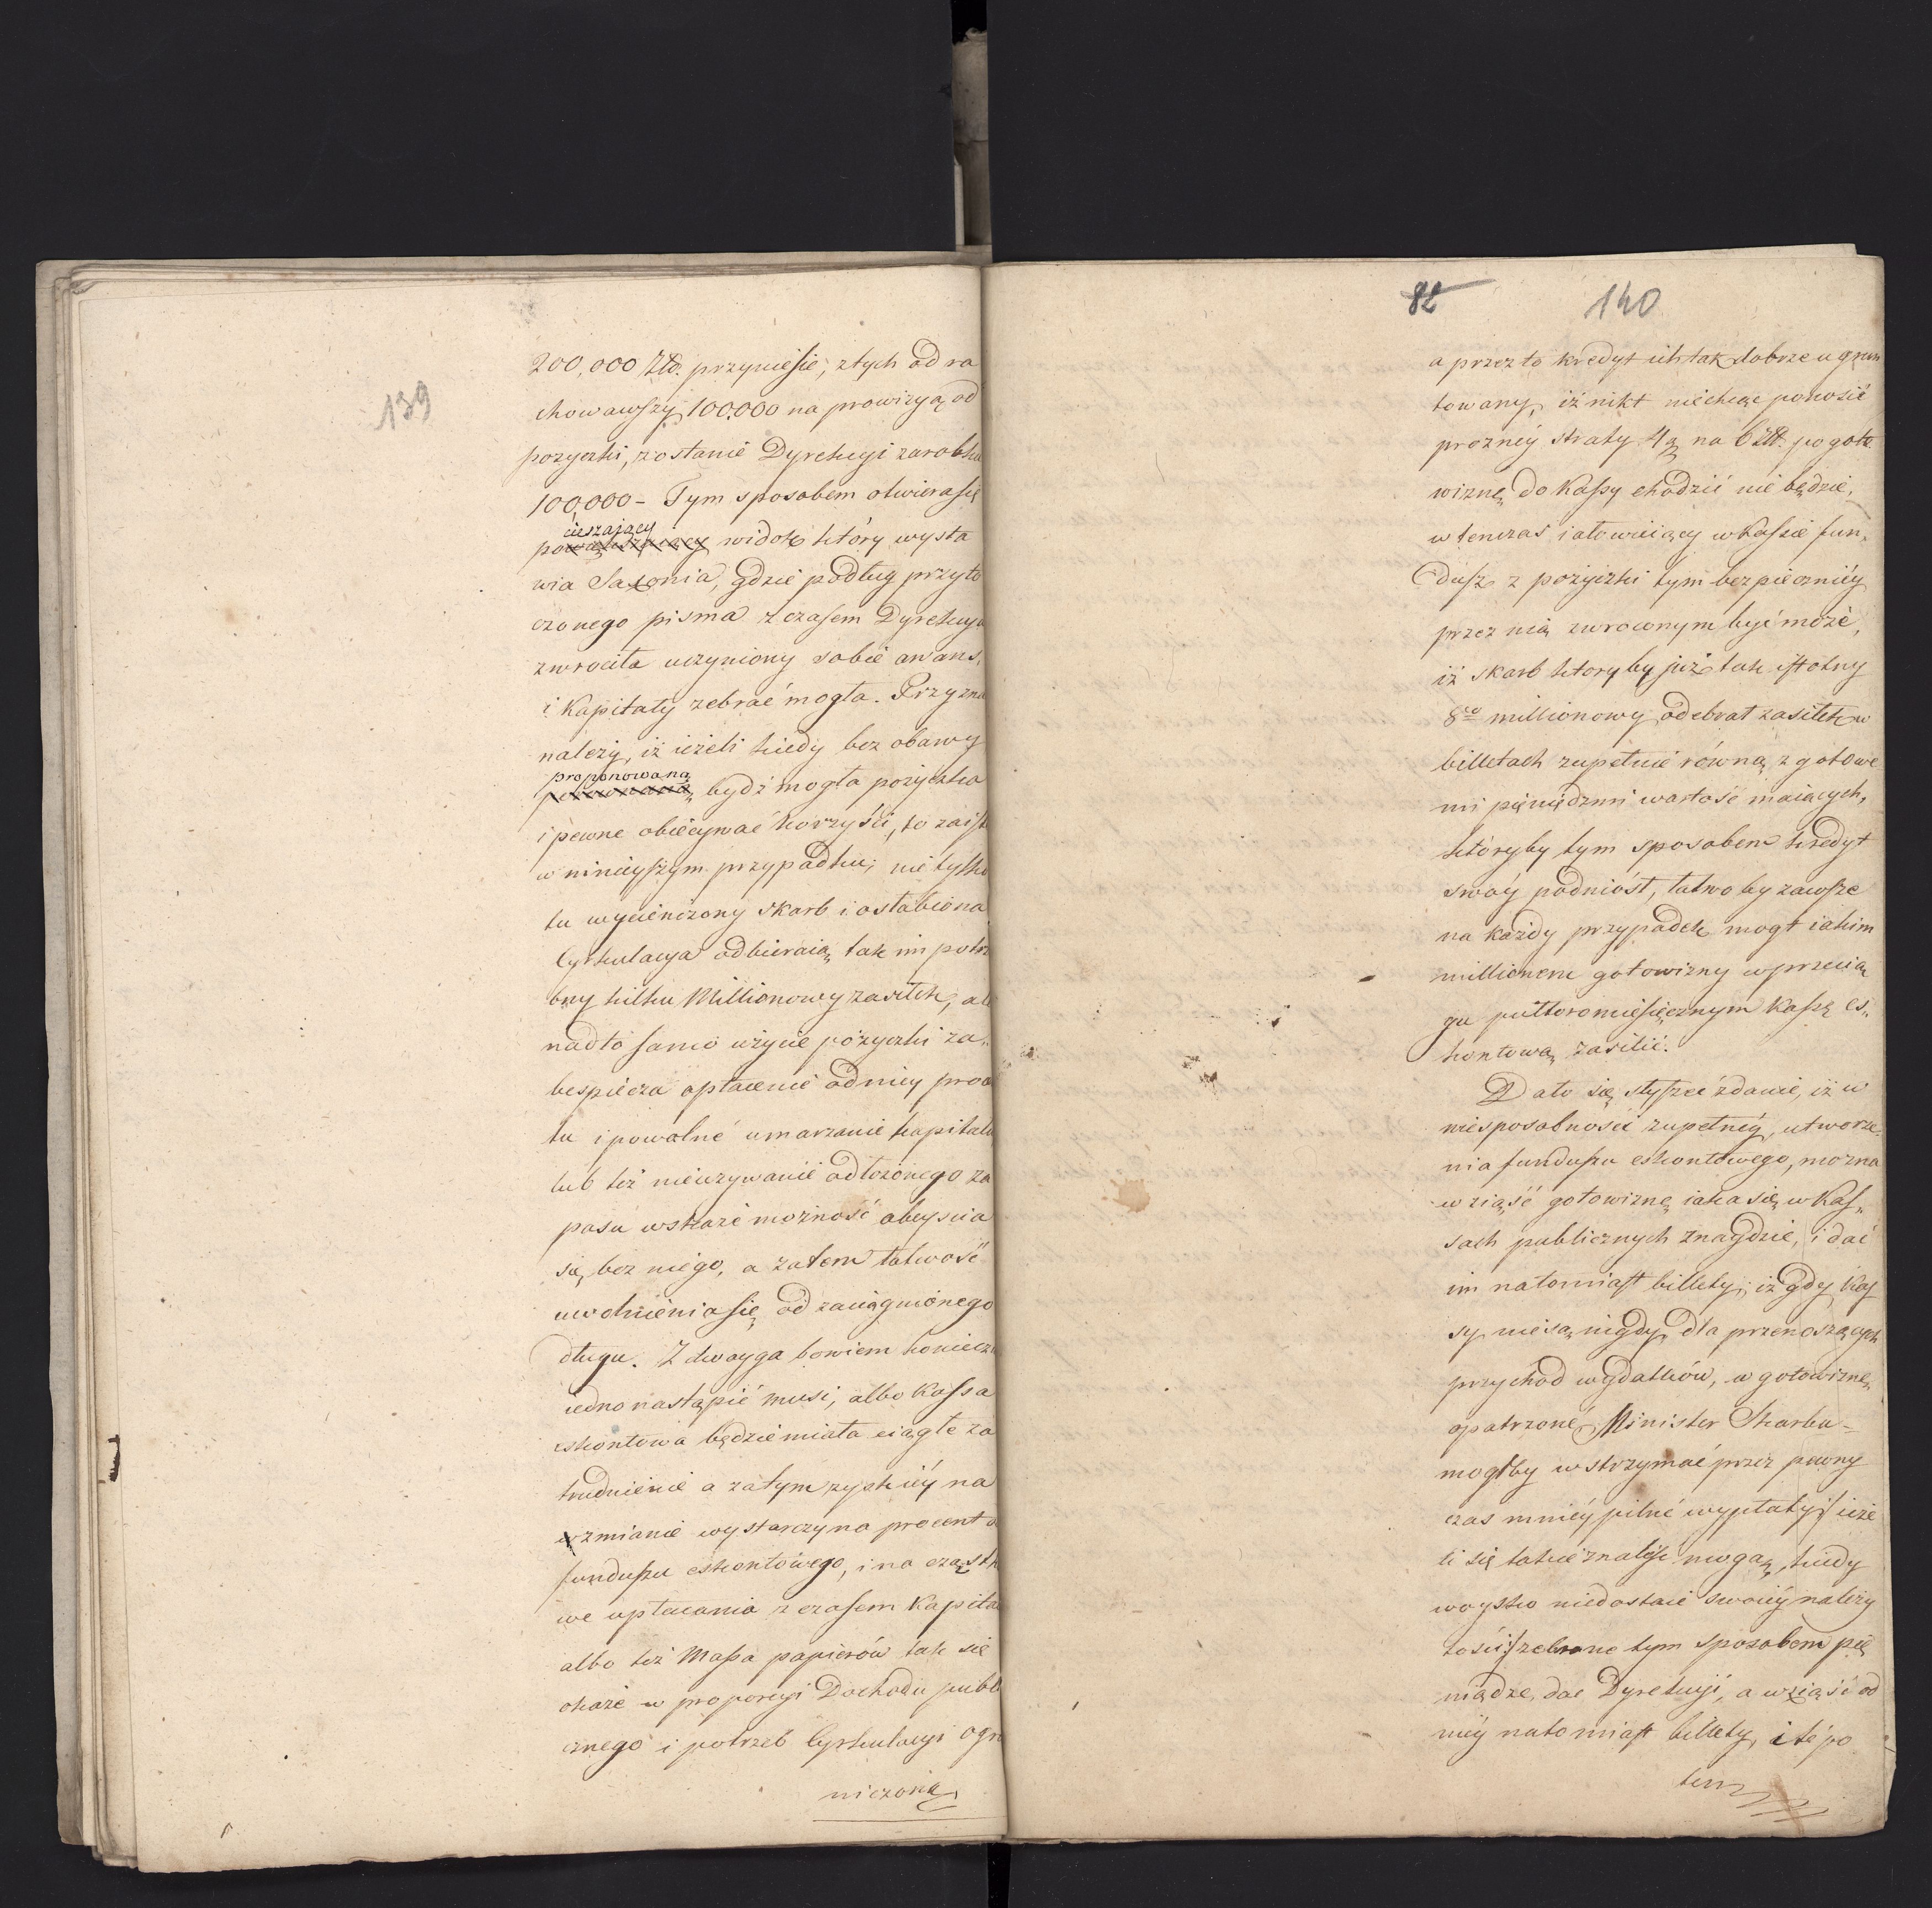 139
200,000 Złł. przyniesie, z tych od ra
chowawszy 100.000 na prowizyą od
pozyczki, zostanie Dyrekcyi zarobku
100,000 – Tym sposobem otwiera się
cieszający
widok który wysta
wia Saxonia, gdzie podług przyto
czonego pisma z czasem Dyrekcya
zwrociła uczyniony sobie awans,
i Kapitały zebrać mogła. Przyzna
należy, iż ieżeli kiedy bez obawy
proponowana
bydź mogła pożyczka
i pewne obiecywać korzyści, to zaist
w ninieyszym przypadku; nie tylko
tu wycieńczony Skarb i osłabiona
Cyrkulacya odbieraią tak im potrz
bny kilku Millionowy zasiłek, ale
nadto samo użycie pożyczki za„
bespiecza opłacenie od niey proce
tu i powolné umarzanie kapitału
lub też nieużywanie odłożonego za
pasu wskaże możność obeyscia
się bez niego, a zatem łatwość
uwolnienia się od zaciągnionego
długu. Z dwoyga bowiem koniecz
iedno nastąpić musi, albo Kassa
eskontowa będzie miała ciągłe za
trudnienie a zatym zysk iéy na
wzmianie wystarczy na procent o
funduszu eskontowego, i na cząstk
we upłacania z czasem Kapita
albo też Massa papierów tak się
okaże w proporcyi Dochodu publi
cznego i potrzeb Cyrkulacyi ogra
niczoną
82 140
a przez to kredyt ich tak dobrze ugrun
towany, iż nikt niechcąc ponosić
prożnéy straty 4 na 6 złł. po goto
wiznę do Kassy chodzić nie będzie,
w tenczas iałowieiący w Kassie fun„
dusz z pożyczki tym bezpieczniéy
przez nią zwroconym być może,
iż skarb ktory by już tak istotny
8io millionowy odebrał zasiłek w
billetach zupełnie równą z gotowe
mi pięniędzmi wartość maiących,
któryby tym sposobem kredyt
swóy podniósł, łatwo by zawsze
na każdy przypadek mogł iakim
millionem gotowizny w przecią
gu półtoromiesięcznym Kassę es„
kontową zasilić.
Dało się słyszeć zdanie, iż w
niesposobności zupełnéy, utworze„
nia funduszu eskontowego, mozna
wziąść gotowiznę iaka się w Kas„
sach publicznych znaydzie, i dać
im natomiast billety; iż gdy Kas
sy nie są nigdy, dla przenoszących
przychod wydatków, w gotowiznę
opatrzoné, Minister Skarbu –
mogłby wstrzymać przez pewny
czas mniéy pilné wypłaty /: ieże
li się takie znaleść mogą, kiedy
woysko niedostaie swoiéy należy
tości :/ zebrane tym sposobem pię
niądze, dać Dyrekcyi, a wziąść od
niéy natomiast billety, i té po
tem